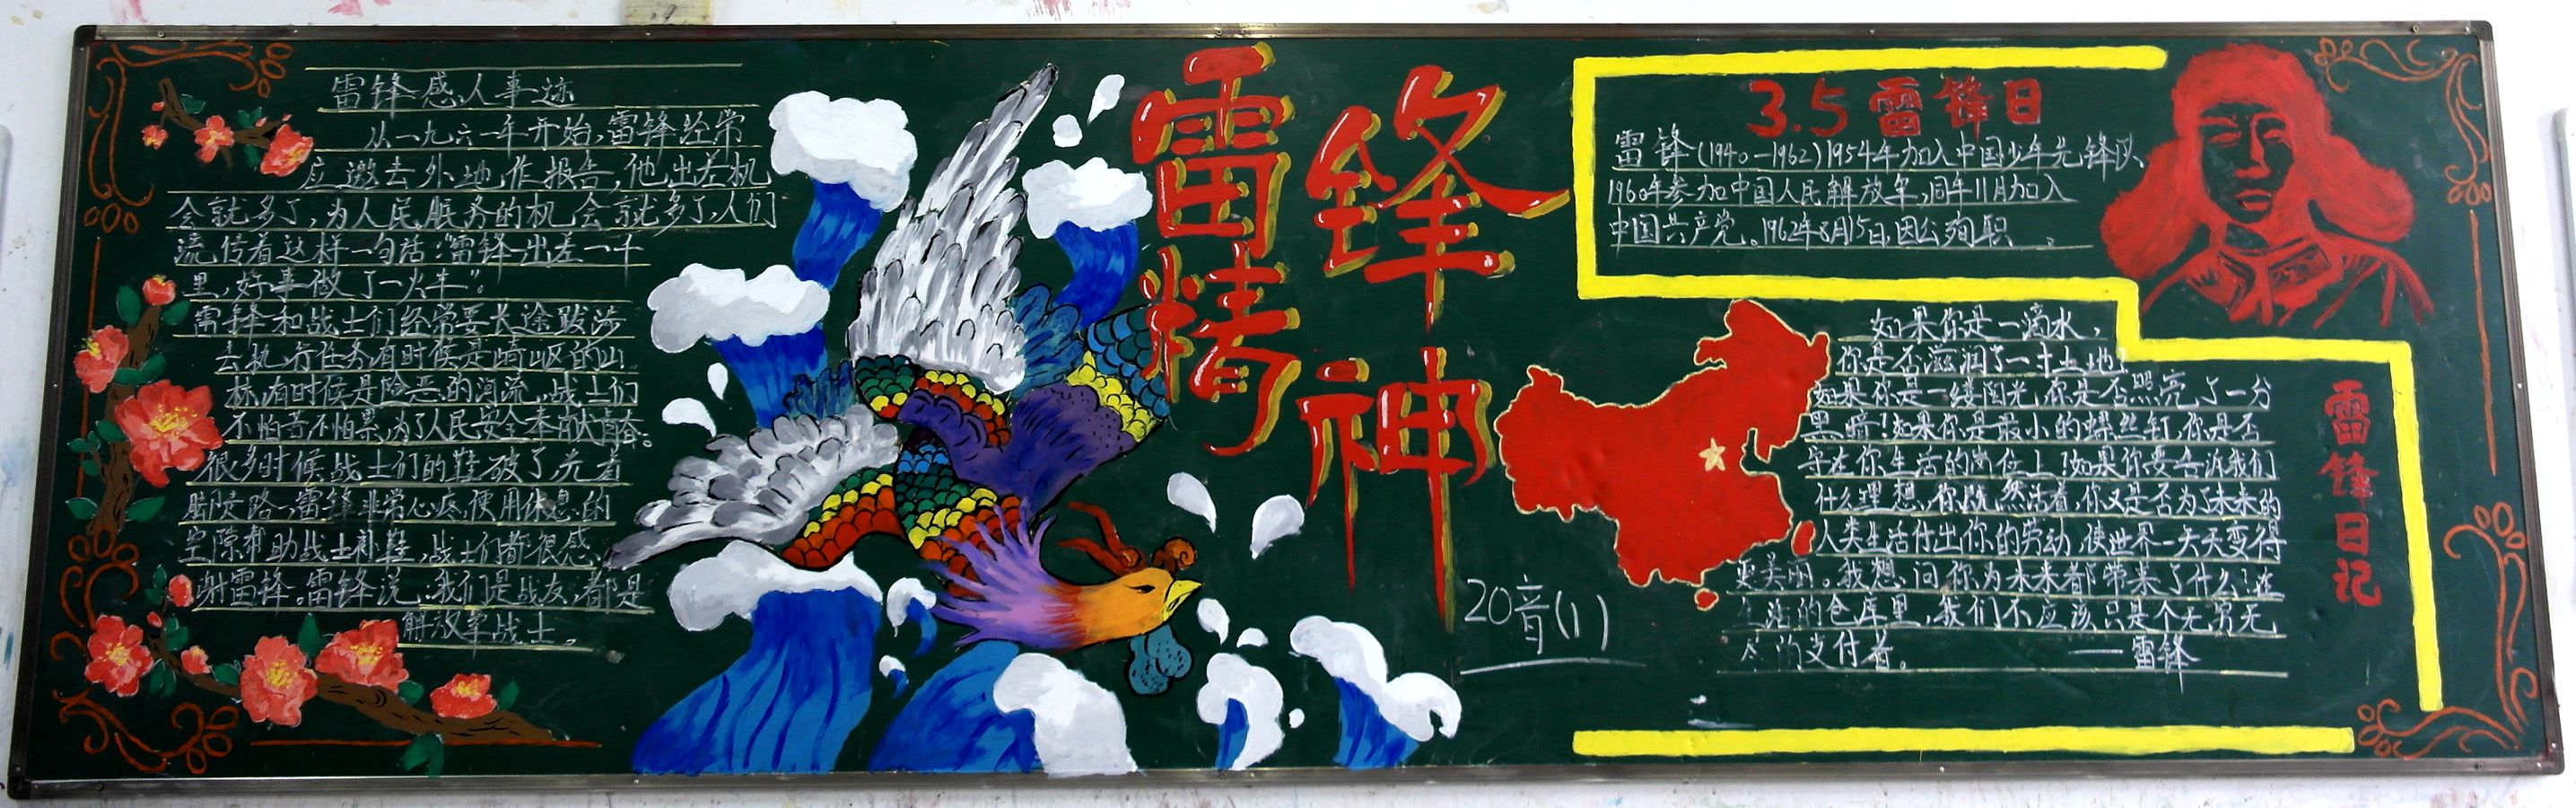 雷锋感人事迹
从一九六一年开始,雷锋经常
应邀去外地作报告,他出差机
会就多了,为人民服务的机会就多了,人们
流传着这样一句话:"雷锋出差一千
里,好事做了一火车"。
雷锋和战士们经常要长途跋涉
去执行任务有时候是崎岖的山
林,有时候是险恶的河流,战士们
不怕苦不怕累,为了人民安全奉献青春。
很多时候战士们的鞋破了,光着
脚走路,雷锋非常心疼,便用休息的
空隙帮助战士补鞋,战士们都很感
谢雷锋。雷锋说:我们是战友,都是
解放军战士。
雷锋
精神
20音(1)
3.5雷锋日
雷锋(1940—1962)1954年加入中国少年先锋队、
1960年参加中国人民解放军,同年11月加入
中国共产党。1962年8月15日,因公殉职。
如果你是一滴水,
你是否滋润了一寸土地
如果你是一缕阳光,你是否照亮了一分
黑暗!如果你是最小的螺丝钉,你是否
守在你生活的岗位上!如果你要告诉我们
什么理想,你既然活着,你又是否为了未来的
人类生活付出你的劳动,使世界一天天变得
更美丽。我想问你,为未来都带来了什么!在
生活的仓库里,我们不应该只是个无穷无
尽的支付者。 ——雷锋
雷锋日记